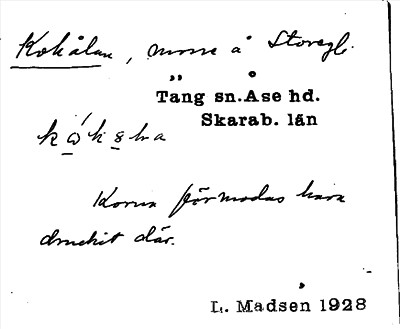 Kokålan, mosse å Storegl.
Täng sn. Åse hd.
Skarab. län
Korna förmodas hava
druckit där.
L. Madsen 1928